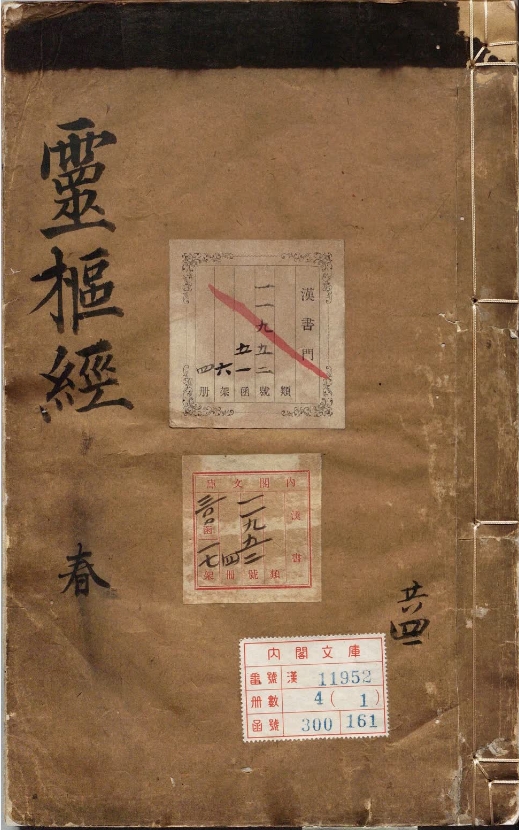 靈樞經
春
共四
漢書門
一一九五二
五一
六
四
類號函架册
內閣文庫
漢書
一一九五二
四
類號册架
內閣文庫
番號 漢 11952
册數 4 ( 1 )
函號 300 161